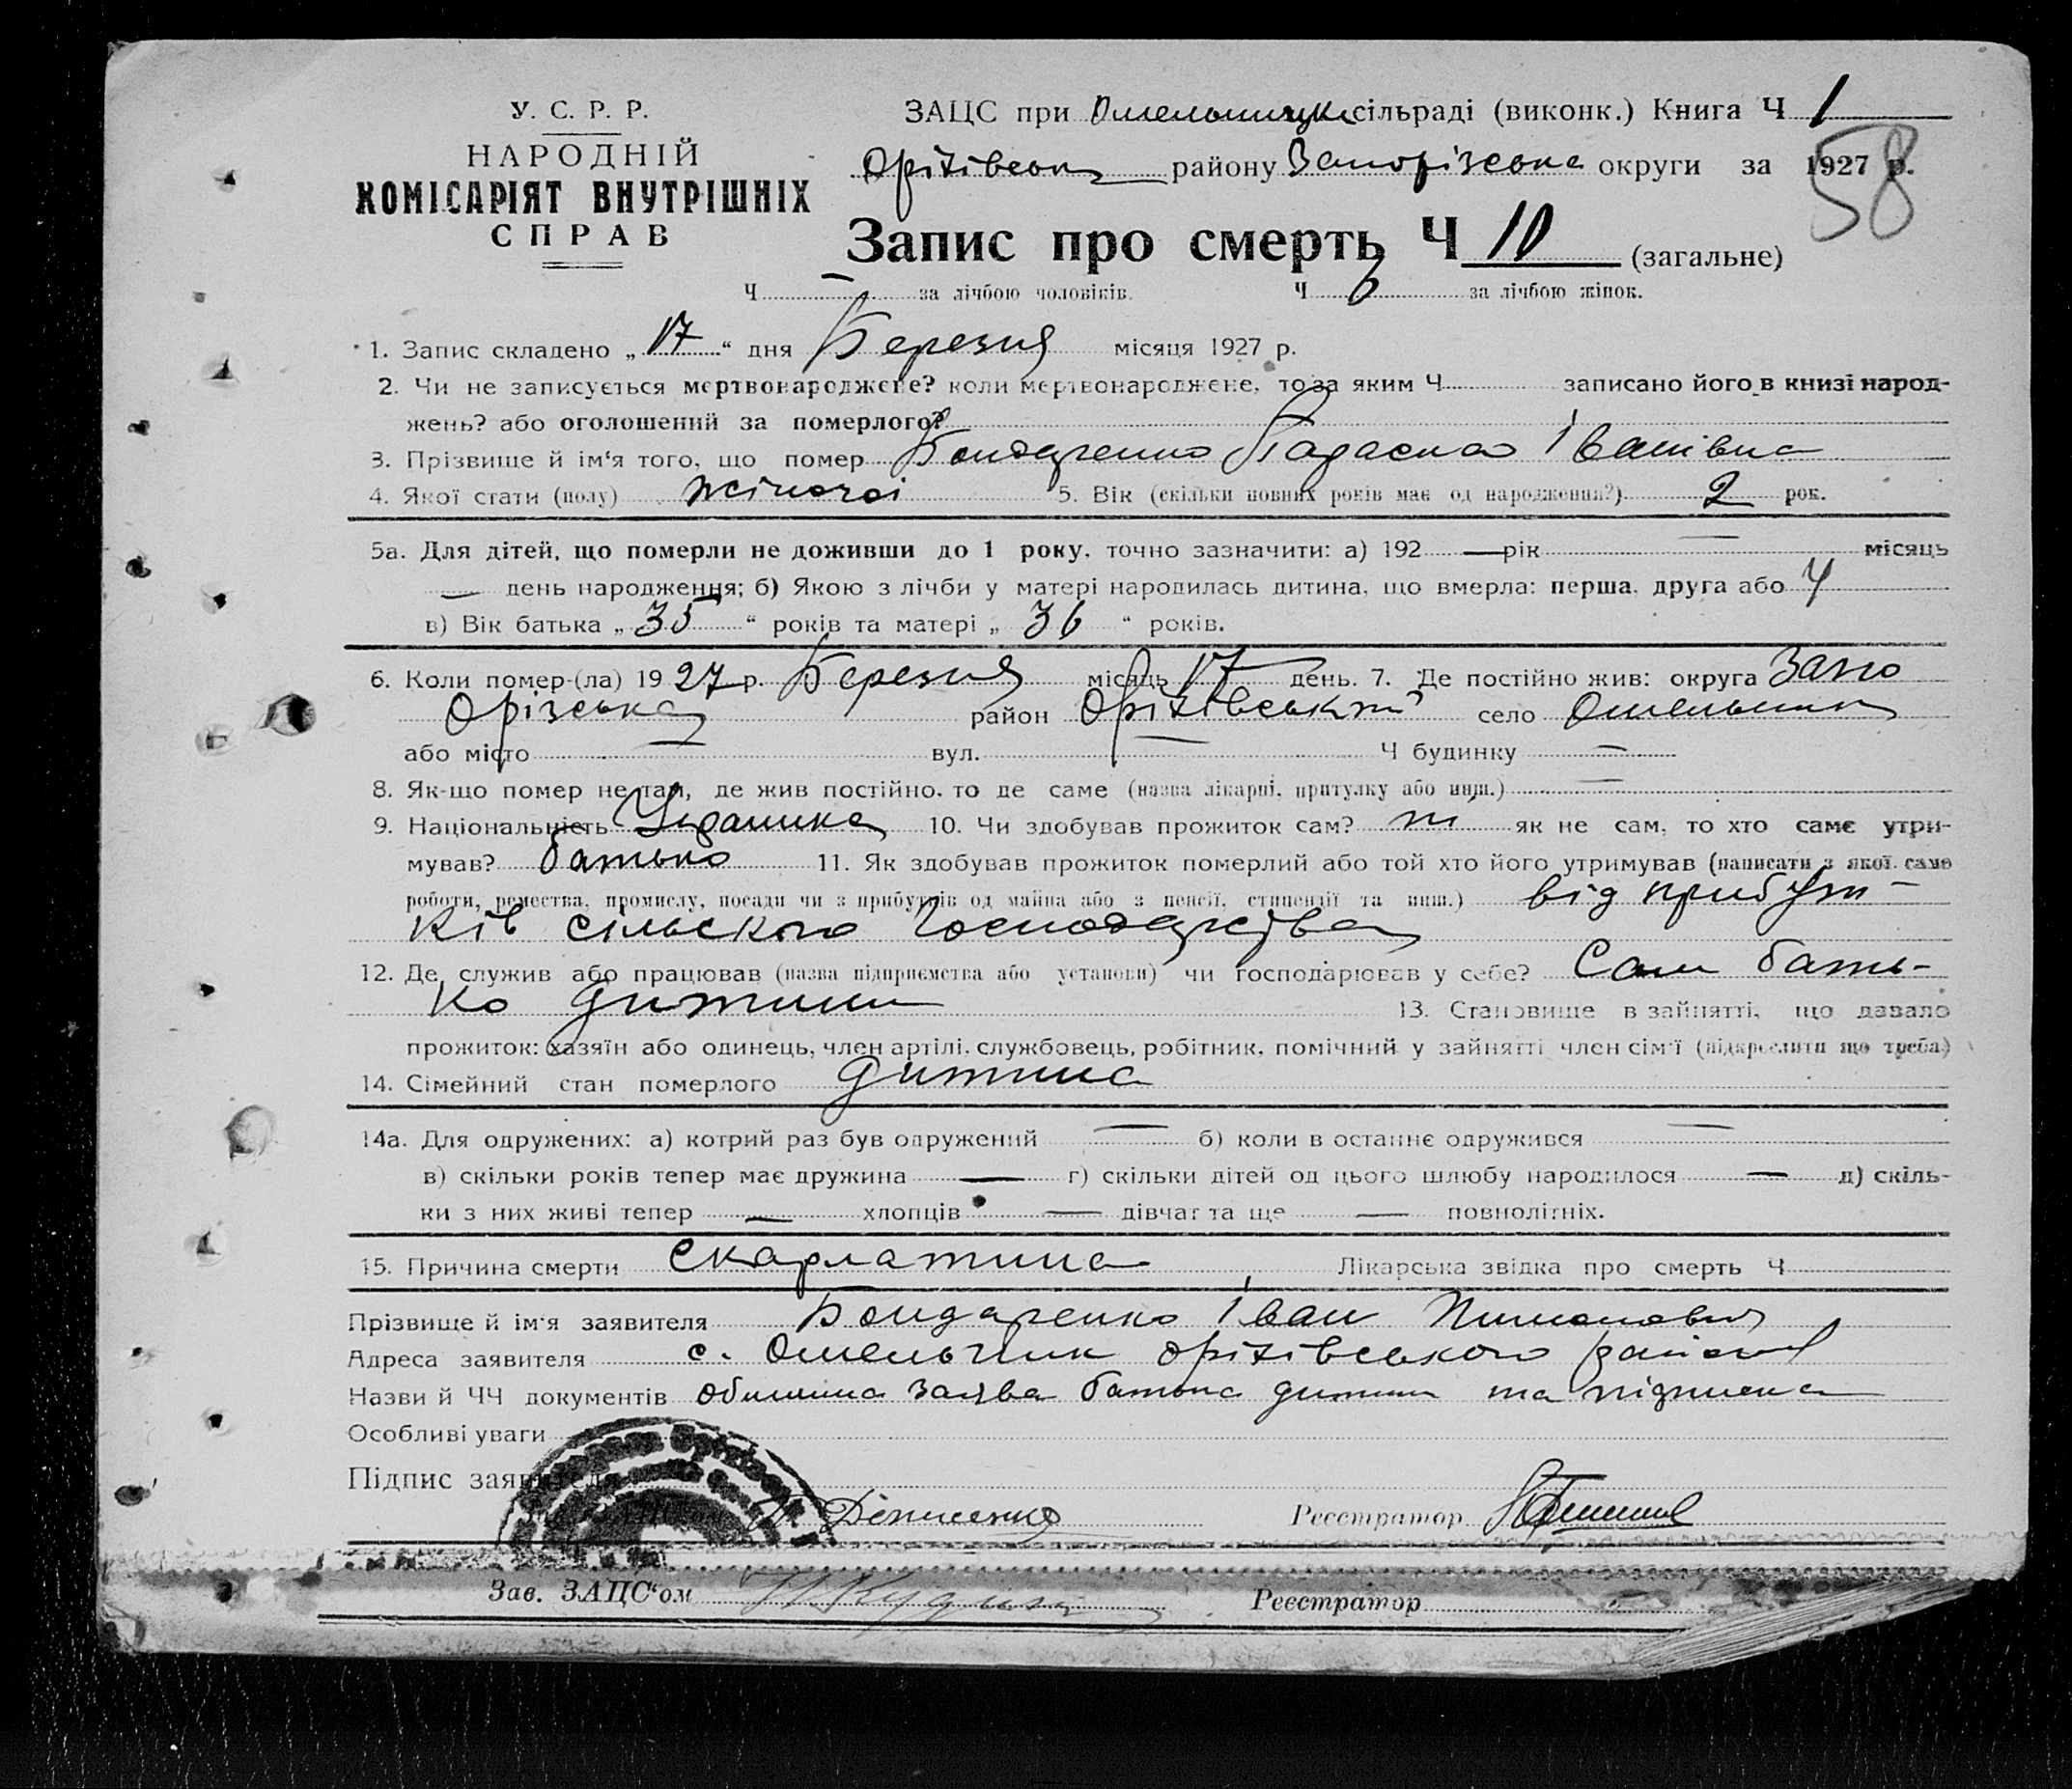 У. С. Р. Р.
НАРОДНІЙ
КОМІСАРІЯТ ВНУТРІШНІХ
СПРАВ
ЗАЦС при Омельницьк сільраді (виконк.) Книга Ч 1
Оріхівськ району Запорізська округи за 1927 р.
58
Запис про смерть Ч 10 (загальне)
Ч — за лічбою чоловіків. Ч 6 за лічбою жінок.
1. Запис складено „ 17 “ дня Березня місяця 1927 р.
2. Чи не записується мертвонароджене? коли мертвонароджене, то за яким Ч записано його в книзі народ-
жень? або оголошений за померлого?
3. Прізвище й ім‘я того, що помер Бондаренко Параска Іванівна
4. Якої стати (полу) жіночої 5. Вік (скільки повних років має од народження?) 2 рок.
5а. Для дітей, що померли не доживши до 1 року, точно зазначити: а) 192 — рік — місяць
— день народження; б) Якою з лічби у матері народилась дитина, що вмерла: перша, друга або 4
в) Вік батька „ 35 “ років та матері „ 36 “ років.
6. Коли помер-(ла) 19 27 р. Березня місяць 17 день. 7. Де постійно жив: округа Запо
орізська район Оріхівський село Омельник
або місто — вул. — Ч будинку —
8. Як-що помер не там, де жив постійно, то де саме (назва лікарні, притулку або инш.) —
9. Національність Українка 10. Чи здобував прожиток сам? ні як не сам, то хто саме утри-
мував? батько 11. Як здобував прожиток померлий або той хто його утримував (написати з якої саме
роботи, ремества, промислу, посади чи з прибутків од майна або з пенсії, стипендії та инш.) від прибут-
ків сільского господарства
12. Де служив або працював (назва підприємства або установи) чи господарював у себе? Сам бать-
ко дитини 13. Становище в зайнятті, що давало
прожиток: хазяїн або одинець, член артілі, службовець, робітник, помічний у зайнятті член сім‘ї (підкреслити що треба)
14. Сімейний стан померлого дитина
14а. Для одружених: а) котрий раз був одружений — б) коли в останнє одружився —
в) скільки років тепер має дружина — г) скільки дітей од цього шлюбу народилося — д) скіль-
ки з них живі тепер — хлопців — дівчат та ще — повнолітніх.
15. Причина смерти скарлатина Лікарська звідка про смерть Ч
Прізвище й ім‘я заявителя Бондаренко Іван Пимонович
Адреса заявителя с. Омельник Оріхівського району
Назви й ЧЧ документів заява батька дитини та підписка
Особливі уваги
Підпис заявителя
Реєстратор
Зав. ЗАЦС‘ом Реєстратор